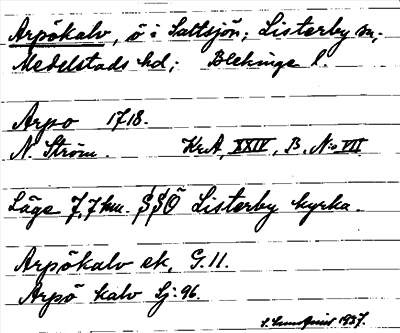 Arpökalv, ö i Saltsjön; Listerby sn,
Medelstads hd; Blekinge l.
Arpo 1718.
N. Ström. KrA, XXIV, B, N:o VII
Läge 7,7 km. SSÖ Listerby kyrka.
Arpökalv ek, G. 11.
Arpö kalv Sj: 96.
1937.